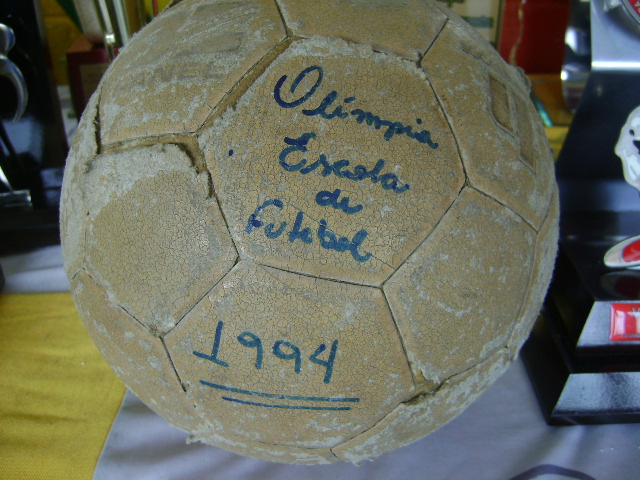 Olímpia
Escola
de
Futebol
1994